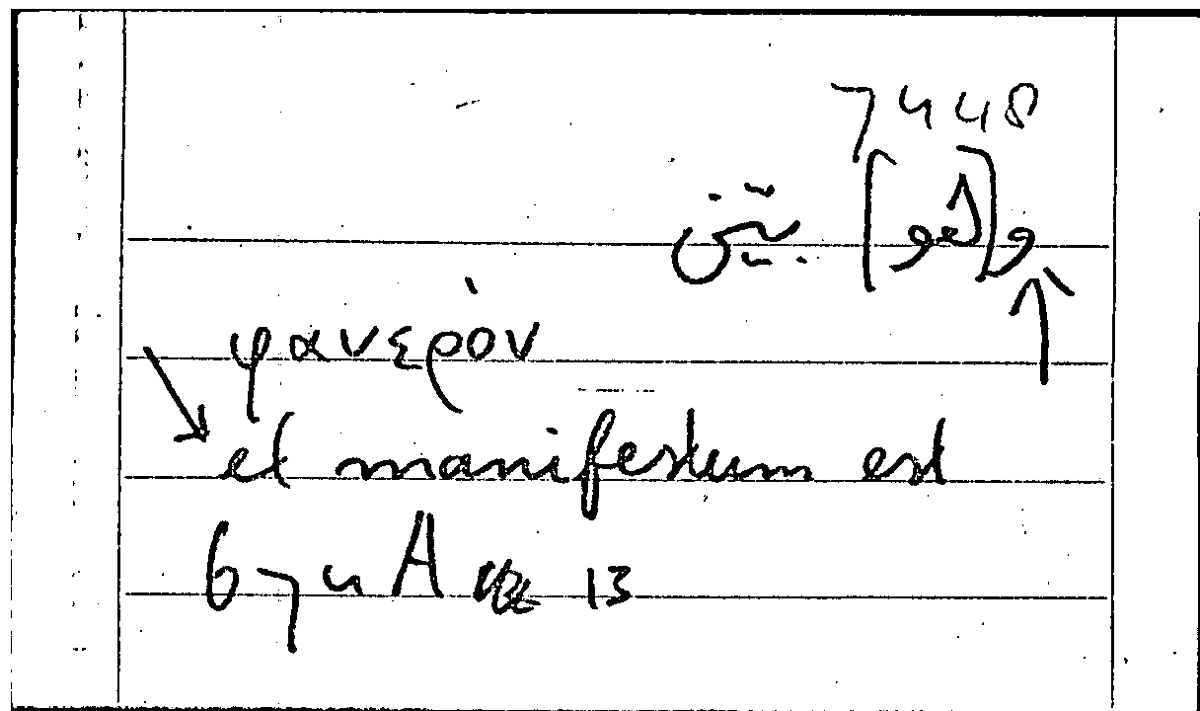 7448
و[هو] بيّن
φανερόν
et manifestum est
674 A 13